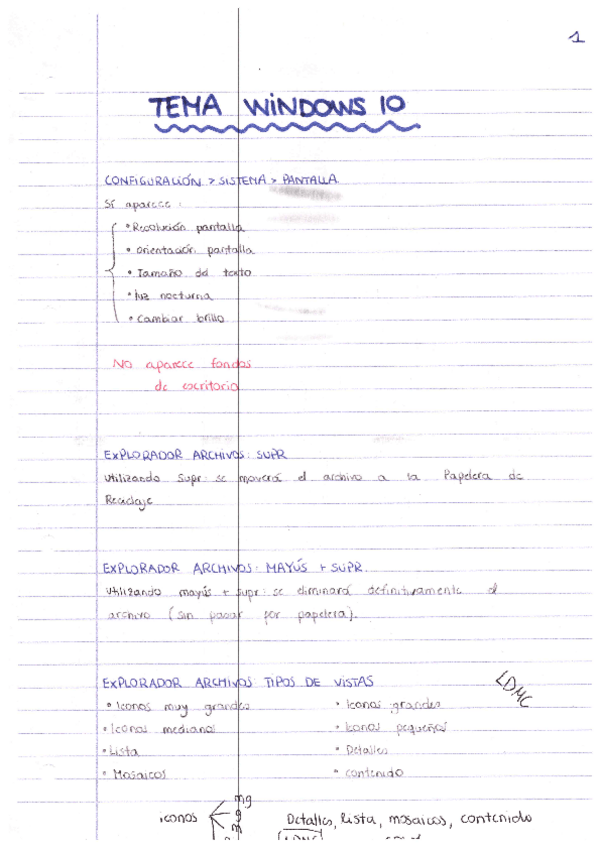 1
TEMA WINDOWS 10
CONFIGURACIÓN > SISTEMA > PANTALLA
Sí aparece:
• Resolución pantalla
• orientación pantalla
• Tamaño del texto
• luz nocturna
• Cambiar brillo
No aparece fondos
de escritorio
EXPLORADOR ARCHIVOS: SUPR
Utilizando Supr se moverá el archivo a la Papelera de
Reciclaje
EXPLORADOR ARCHIVOS: MAYÚS + SUPR.
Utilizando mayús + supr se eliminará definitivamente el
archivo (sin pasar por papelera).
EXPLORADOR ARCHIVOS: TIPOS DE VISTAS
LDMC
• Iconos muy grandes • Iconos grandes
• Iconos medianos • Iconos pequeños
• Lista • Detalles
• Mosaicos • contenido
mg
iconos g Detalles, lista, mosaicos, contenido
m
LDMC